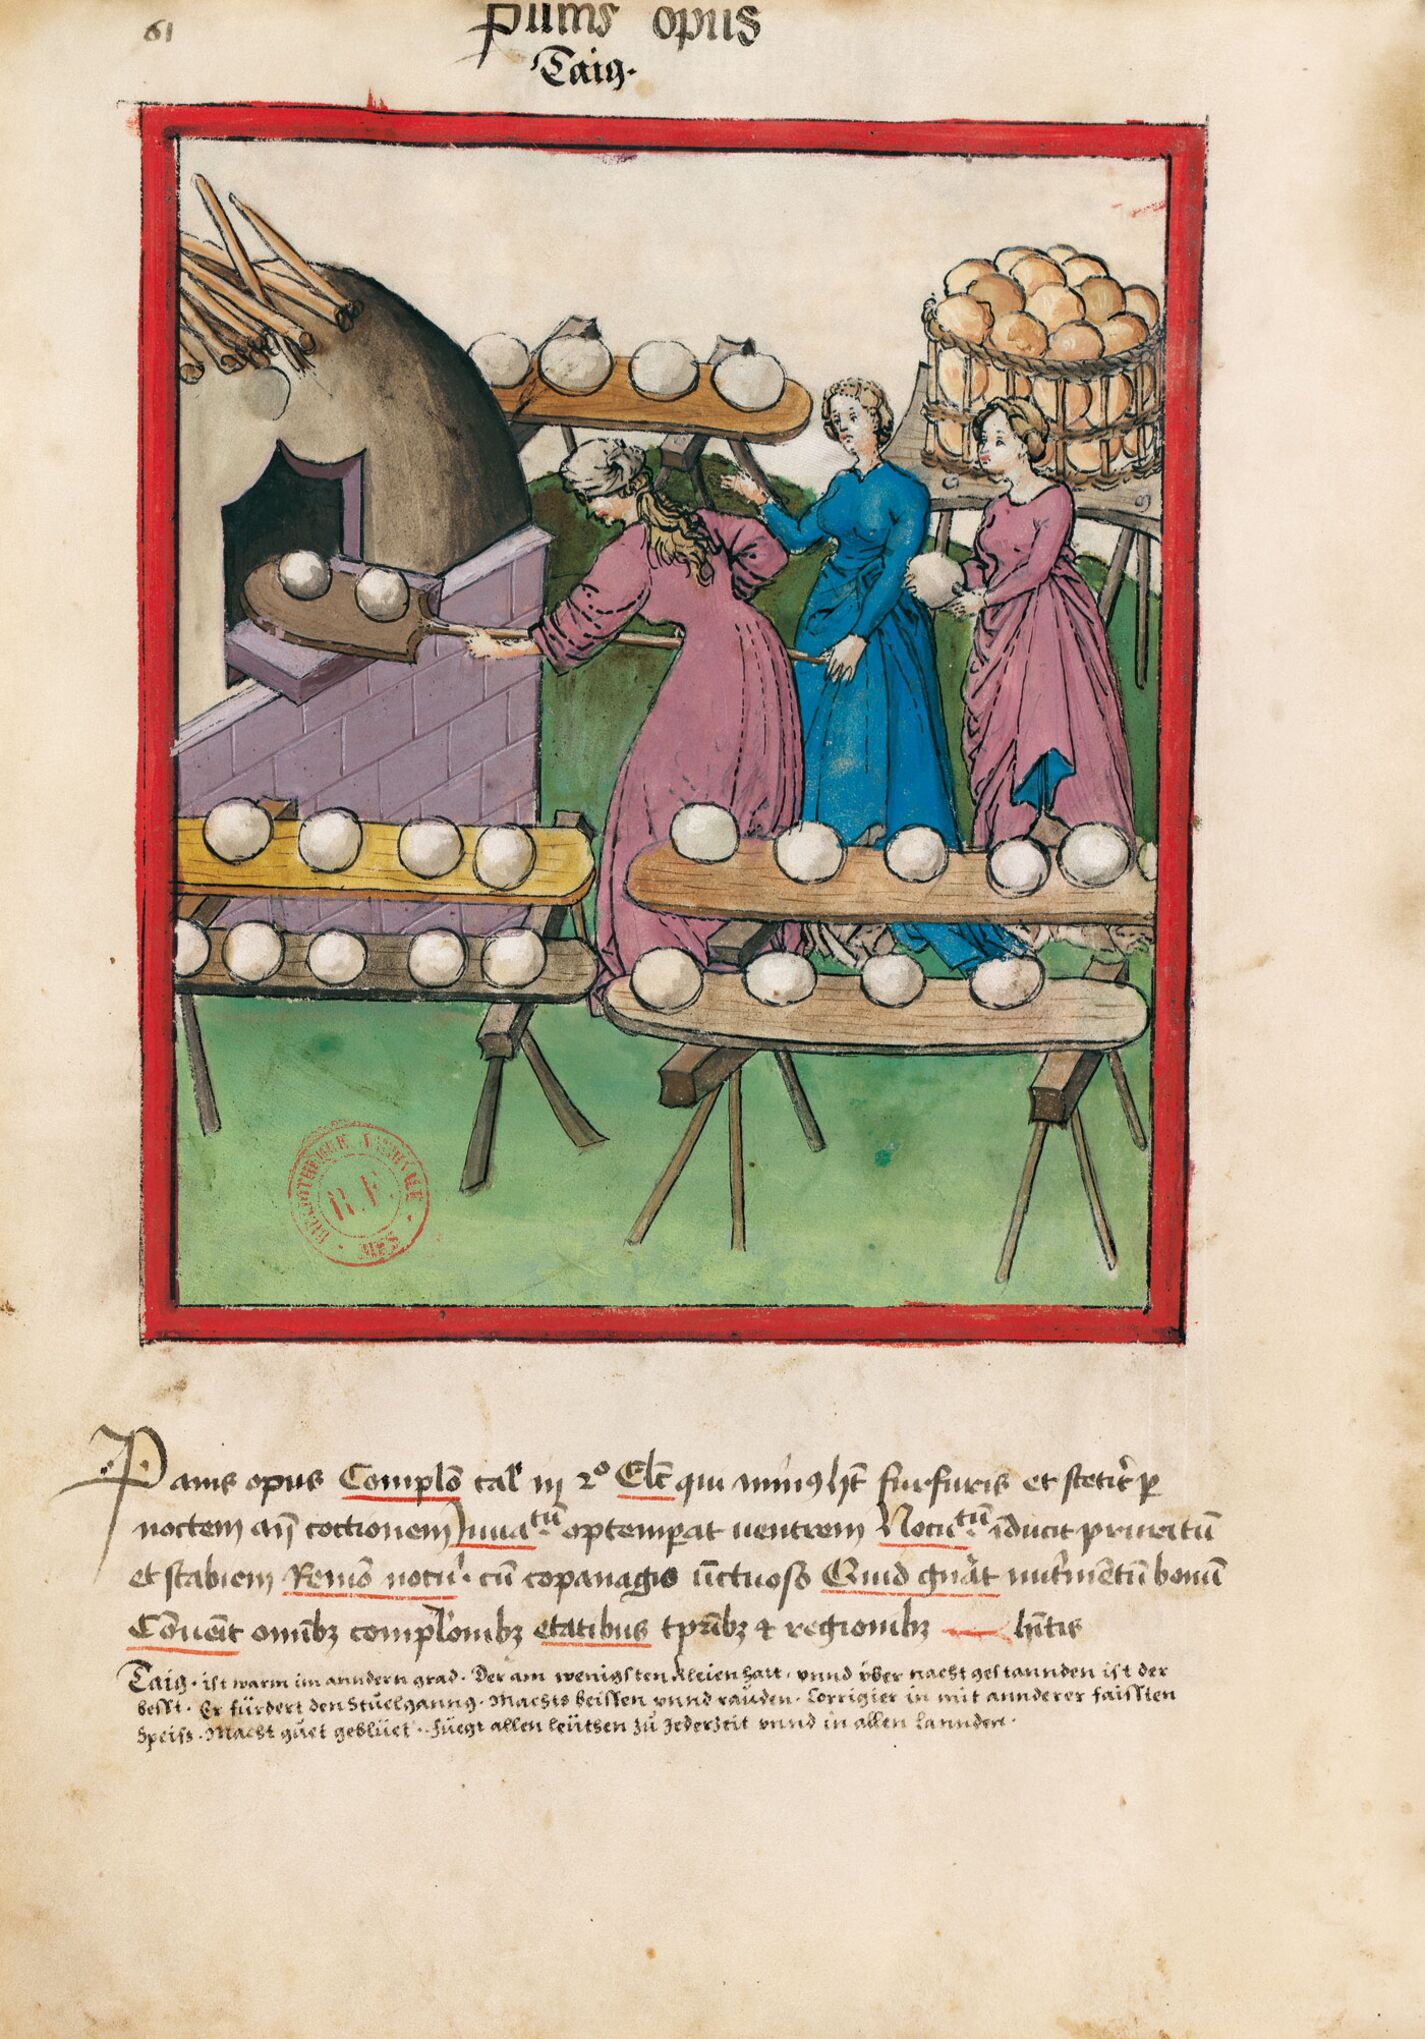 61
Panis opus
Taig.
BIBLIOTHEQUE NATIONALE
R.F.
Panis opus Complo cał in 2o Elc̄ qui minus ht̄ furfuris et stetit̄ p
noctem añ coctionem Juuatū optemperat uentrem Nocutū īducit pruritū
et scabiem Remo nocū cū copanagio ūctuoso Quid gnāt nutrimētū bonū
Cōuēit omībꝫ complōnibꝫ etatibus tprībꝫ & regionibꝫ hītis
Taig. ist warm im anndern grad. Der am wenigsten kleien hatt. vnnd vber nacht gestannden ist der
besst. Er fürdert den Stuelganng. Machts beissen vnnd rauden. Corrigier in mit annderer faissten
Speiss. Macht guet geblüet. Fuegt allen leütsen zu Jederzeit vnnd in allen lannden.